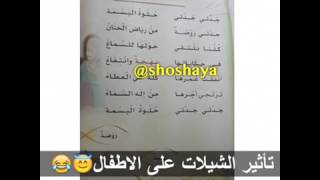 جدتي جدتي حلوة البسمة
جدتي روضة من رياض الحنان
كلنا نلتقي حولها للسماع
في حكاياتها بهجة وانتفاع
@shoshaya
عمرها كله للعطاء
نرتجي أجرها من إله السماء
جدتي جدتي حلوة البسمة
روضة
تأثير الشيلات على الاطفال😇😂